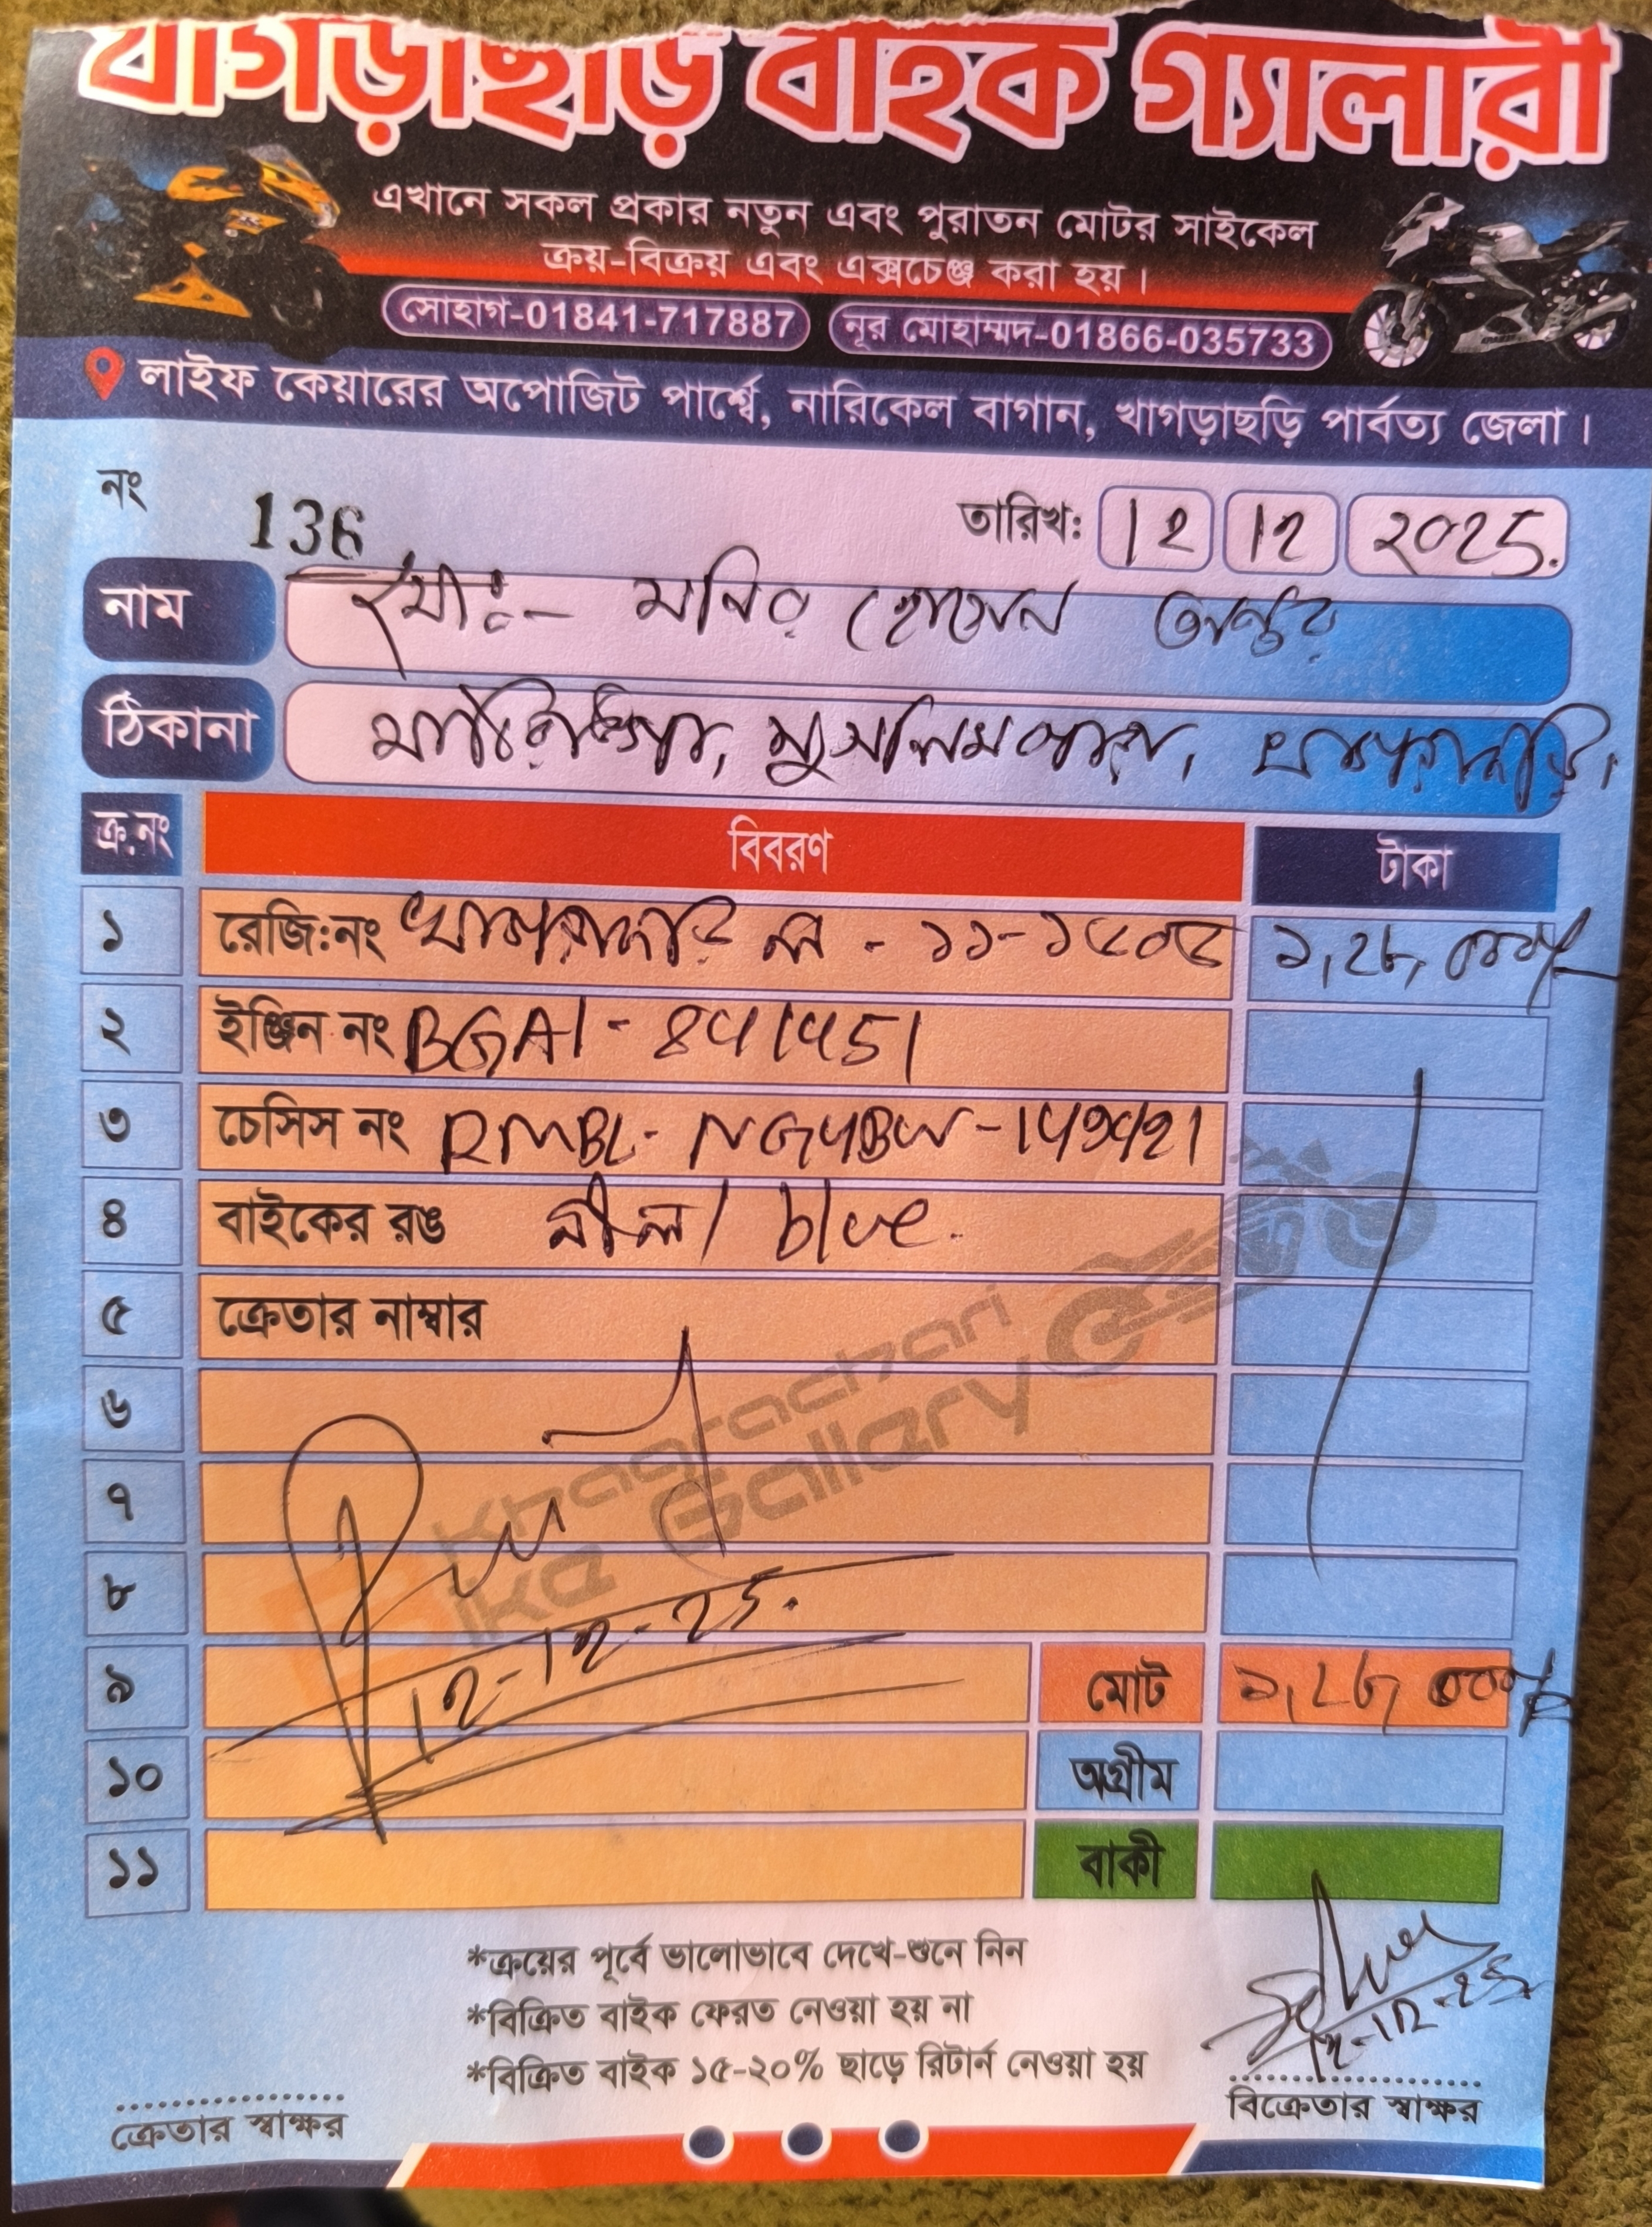 খাগড়াছড়ি বাইক গ্যালারী
এখানে সকল প্রকার নতুন এবং পুরাতন মোটর সাইকেল
ক্রয়-বিক্রয় এবং এক্সচেঞ্জ করা হয়।
সোহাগ-01841-717887 নূর মোহাম্মদ-01866-035733
লাইফ কেয়ারের অপোজিট পার্শ্বে, নারিকেল বাগান, খাগড়াছড়ি পার্বত্য জেলা।
নং 136 তারিখ: 12 12 ২০25.
নাম মোঃ- মনির হোসেন অন্তর
ঠিকানা মুসলিমপাড়া, খাগড়াছড়ি।
ক্র.নং বিবরণ টাকা
১ রেজি:নং খাগড়াছড়ি ল - ১১-১৫০৫
২ ইঞ্জিন নং BGA1-841451
৩ চেসিস নং
৪ বাইকের রঙ নীল/ blue.
৫ ক্রেতার নাম্বার
৬
৭
৮
12-12-25.
৯ মোট
১০ অগ্রীম
১১ বাকী
Khagrachari
Bike Gallery
*ক্রয়ের পূর্বে ভালোভাবে দেখে-শুনে নিন
*বিক্রিত বাইক ফেরত নেওয়া হয় না
*বিক্রিত বাইক ১৫-২০% ছাড়ে রিটার্ন নেওয়া হয়
12-12-25
ক্রেতার স্বাক্ষর বিক্রেতার স্বাক্ষর